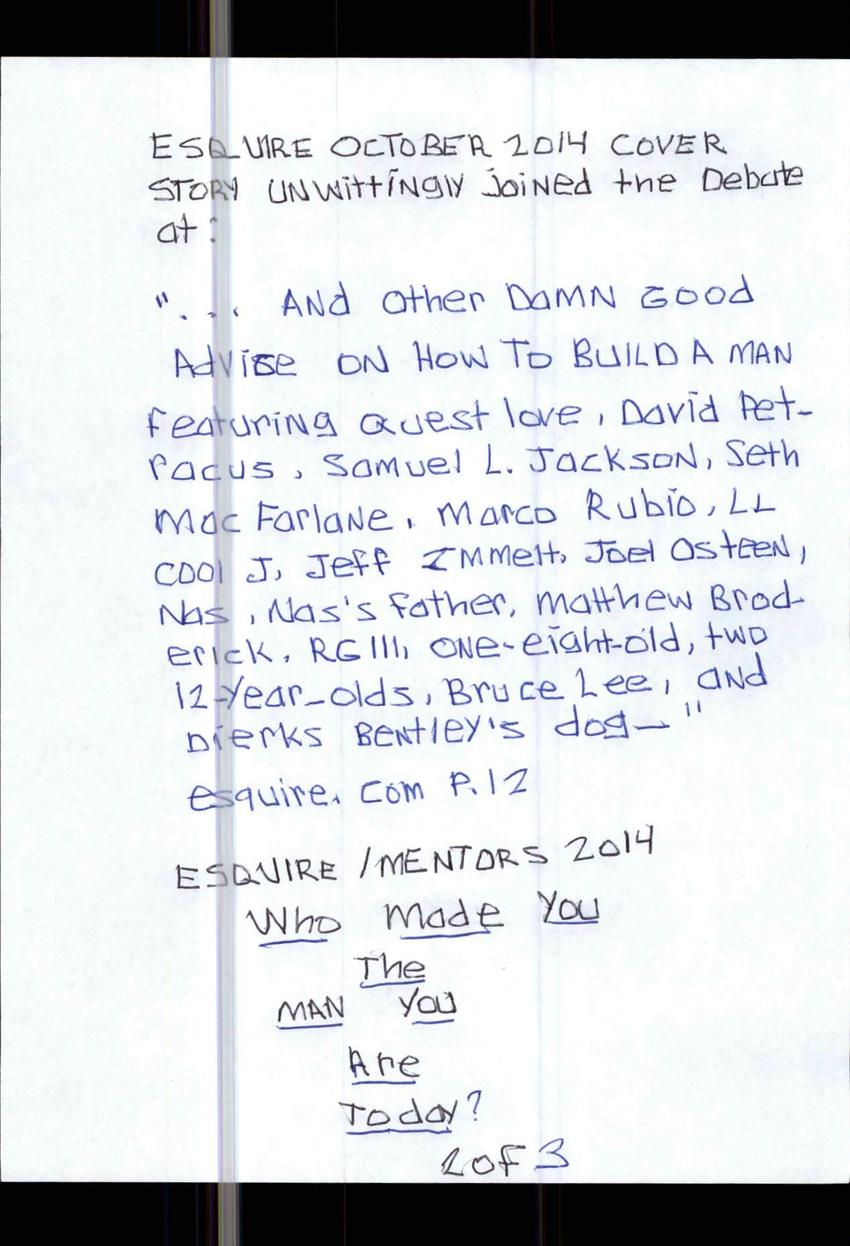 ESQUIRE OCTOBER 2014 COVER
STORY UNWittingly Joined the Debate
at:
"... ANd Other DAMN GOOd
Advise ON HOW TO BUILD A MAN
Featuring Quest love, David Pet-
racus, Samuel L. JACKSON, Seth
Mac Farlane, Marco Rubio, LL
COOl J, Jeff Immelt, Joel OsteeN,
Nas, Nas's father, Matthew Brod-
erick, RG III, ONe-eight-old, two
12-Year-olds, Bruce Lee, and
Dierks BENtley's dog—"
esquire.com P.12
ESQUIRE /MENTORS 2014
Who Made You
The
MAN You
Are
Today?
2 of 3